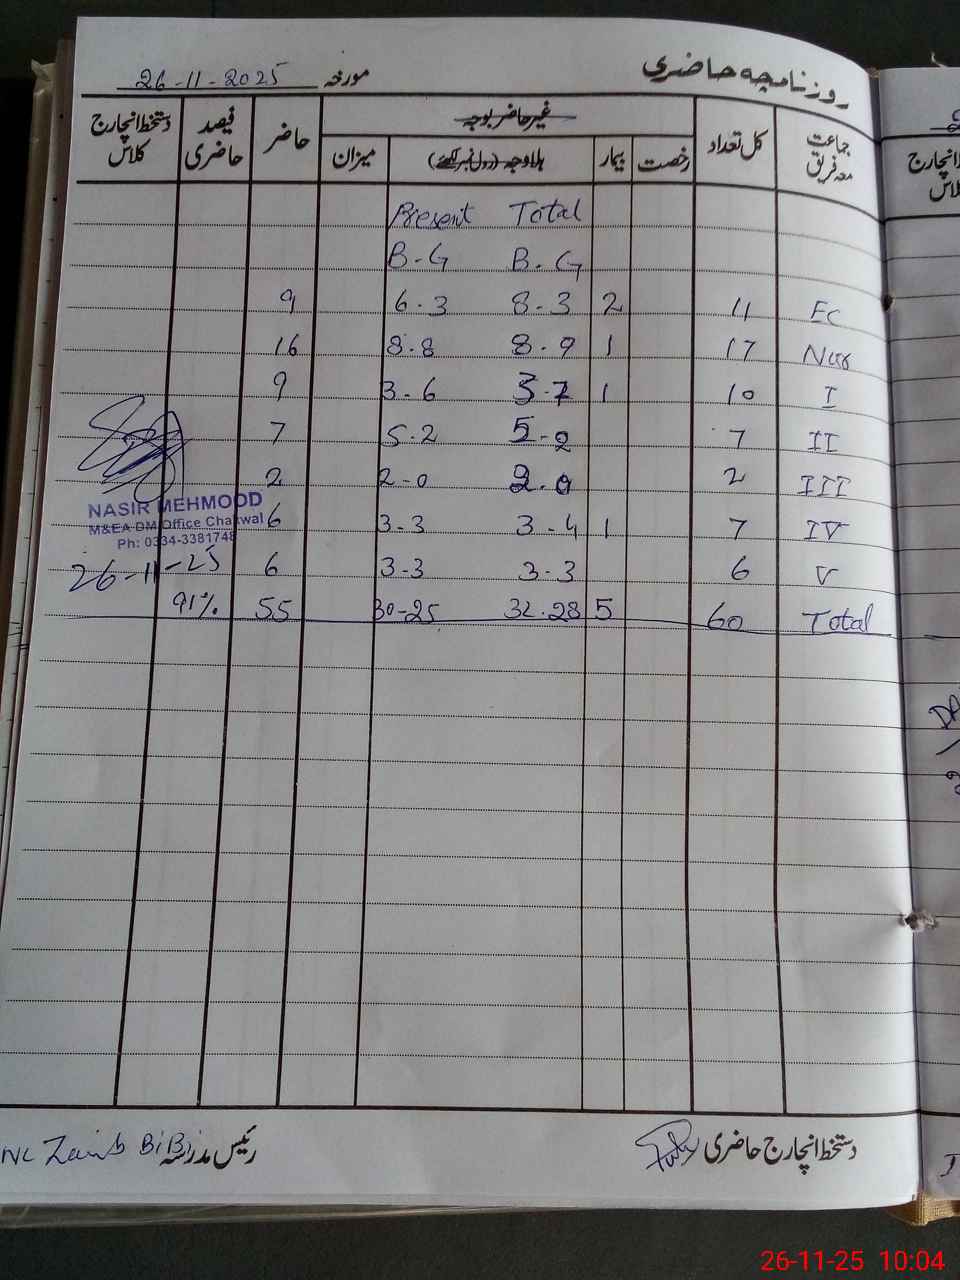 روزنامچہ حاضری
مورخہ 26-11-2025
جماعت معہ فریق کل تعداد غیر حاضر بوجہ حاضر فیصد حاضری دستخط انچارج کلاس
رخصت بیمار بلاوجہ (رول نمبر لکھئے) میزان
Present Total
B.G B.G
9 6.3 8-3 2 11 Ec
16 8.8 8.9 1 17 Nur
9 3-6 3-7 1 10 I
7 5.2 5-2 7 II
2 2-0 2.0 2 III
NASIR MEHMOOD
M&EA DM Office Chakwal
Ph: 0334-3381748
6 3-3 3-4 1 7 IV
26-11-25 6 3-3 3-3 6 V
91% 55 30-25 32.28 5 60 Total
دستخط انچارج حاضری
رئیس مدرسہ Zainb BiBi
انچارج
26-11-25 10:04